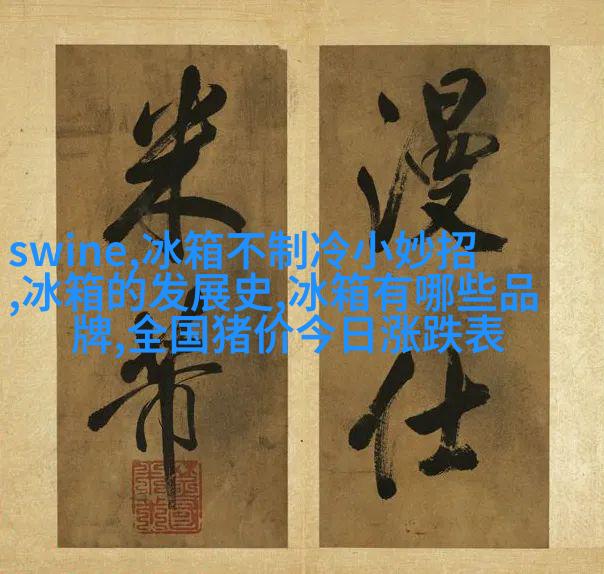 swine,冰箱不制冷小妙招
,冰箱的发展史,冰箱有哪些品
牌,全国猪价今日涨跌表
漫仕
米芾